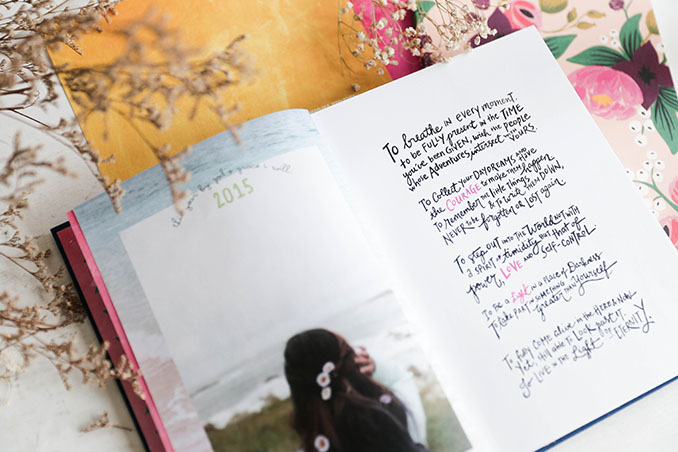 2015
To breathe in every moment,
to be FULLY present in the TIME
you've been GIVEN, with the people
whose Adventures intersect with YOURS.
To Collect your DAYDREAMS AND have
the COURAGE to make them happen,
To remember the little things,
& to write them DOWN,
NEVER to be forgotten or LOST again.
To step out into the World NOT WITH
a SPIRIT of timidity but that of
power, LOVE and SELF-CONTROL.
To be a light in a place of Darkness
To take part in something
greater than yourself.
To fully come alive in the HERE & NOW,
yet, still able to LOOK past it
for LOVE in the Light of ETERNITY.